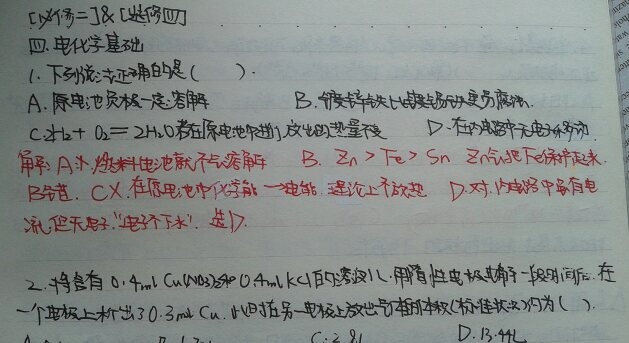 [必修二] & [选修四]
四.电化学基础
1.下列说法正确的是(  ).
A.原电池负极一定溶解 B.镀锌铁比镀锡铁更易腐蚀.
C.2H₂+O₂=2H₂O若在原电池中进行,放出的热量不变 D.在内电路中无电子移动
解:A.×.燃料电池就不会溶解 B. Zn>Fe>Sn Zn会把Fe保护起来.
B错. C×.在原电池中化学能→电能.理论上不放热 D.对.内电路中虽有电
流,但无电子."电子不下水". 选D.
2.将含有0.4mol Cu(NO₃)₂和0.4mol KCl的溶液1L.用惰性电极电解一段时间后.在
一个电极上析出了0.3mol Cu.此时在另一电极上放出气体的体积(标准状况)约为( ).
D.13.44L